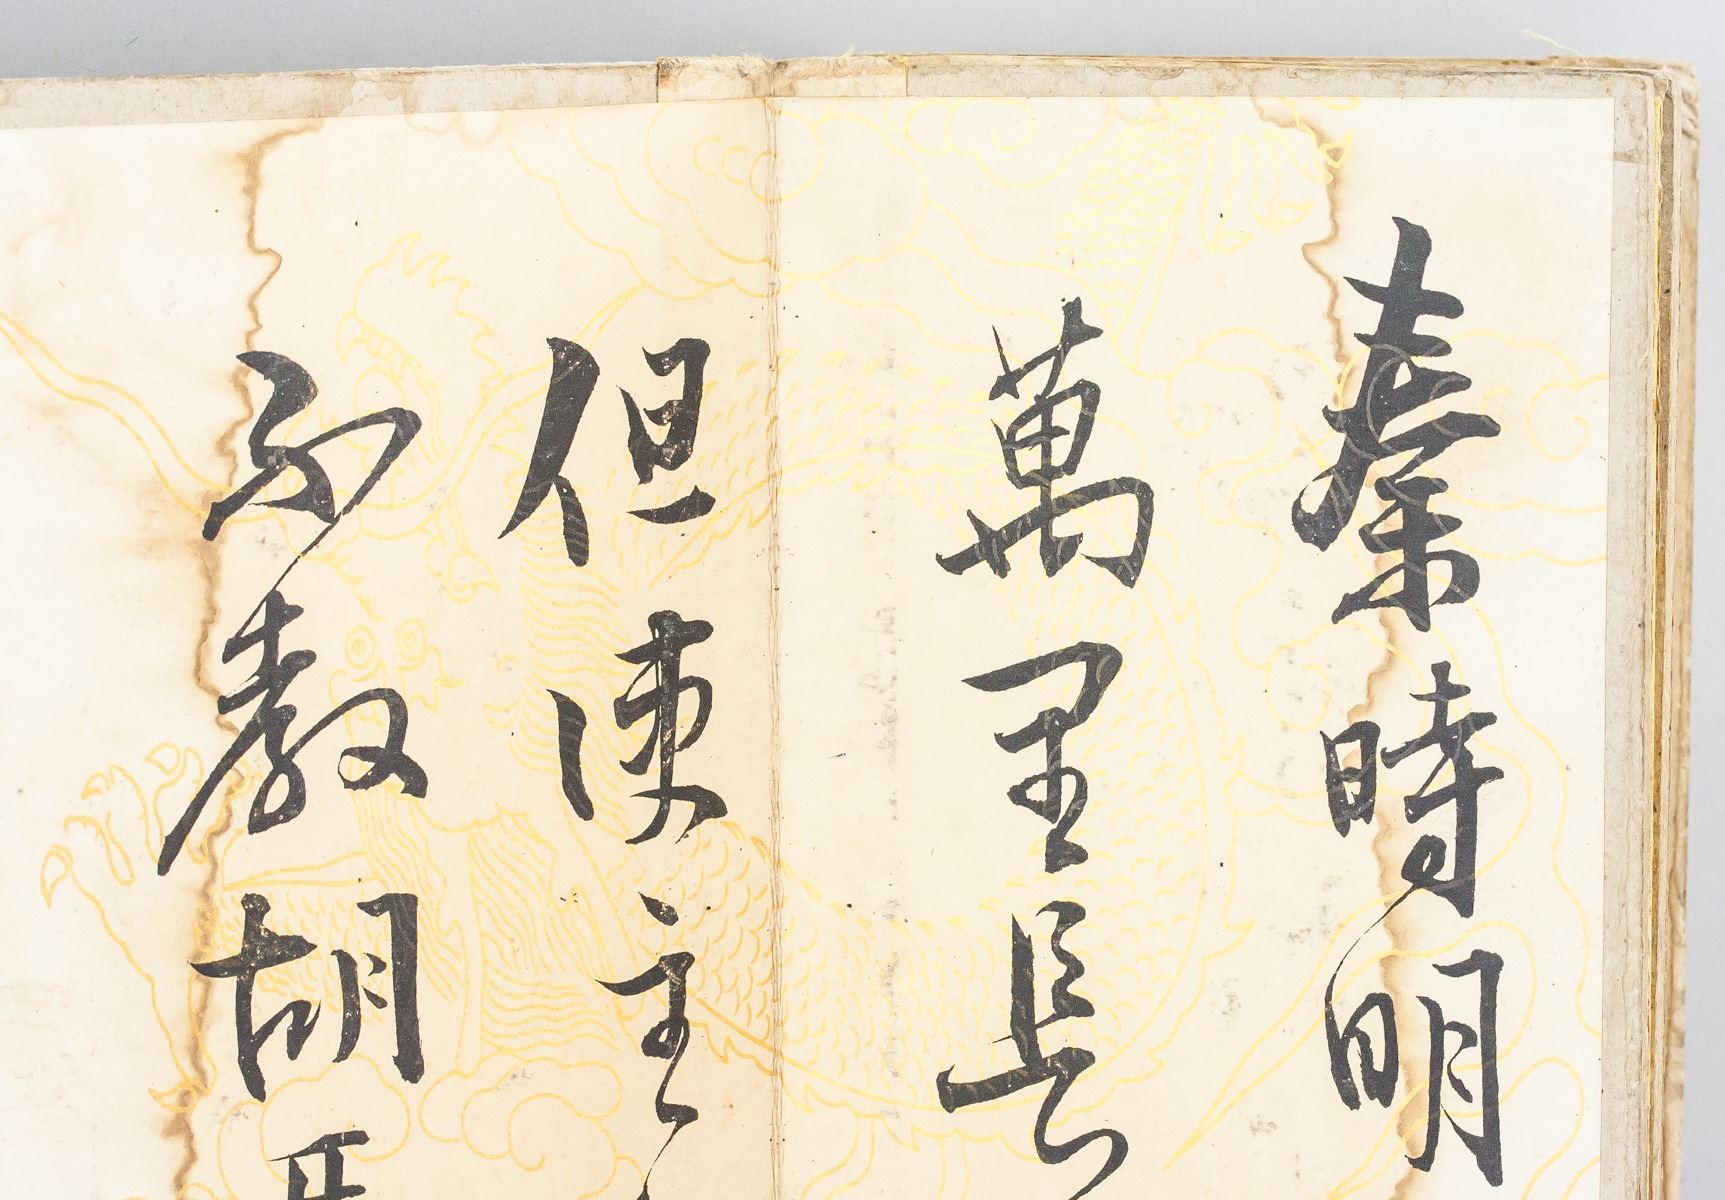 秦時明
萬里長
但使主
不教胡馬